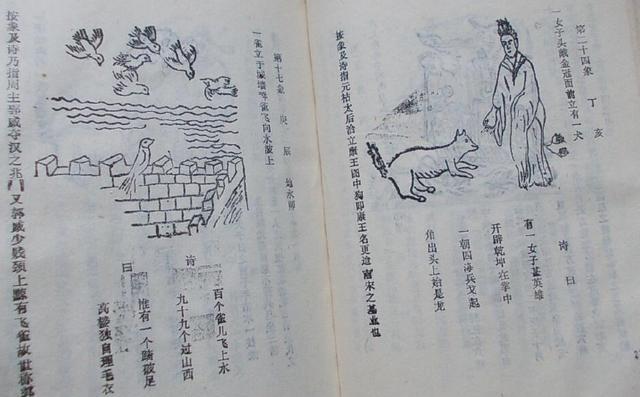 第二十四象 丁 亥
一女子头戴金冠面前立有一犬
诗曰
有一女子甚英雄
开辟乾坤在掌中
一朝四海兵又起
角出头上始是龙
按象及诗指元祐太后 立康王图中狗即康王名更造南宋之基业也
第十七象 庚 辰 地水师
一雀立于城墙 雀飞向水 上
诗曰
百个雀儿飞上水
九十九个过山西
惟有一个踏破足
高楼独自理毛衣
按象及诗乃指周主郭威夺汉之兆又郭威少贱颈上黥有飞雀故世称